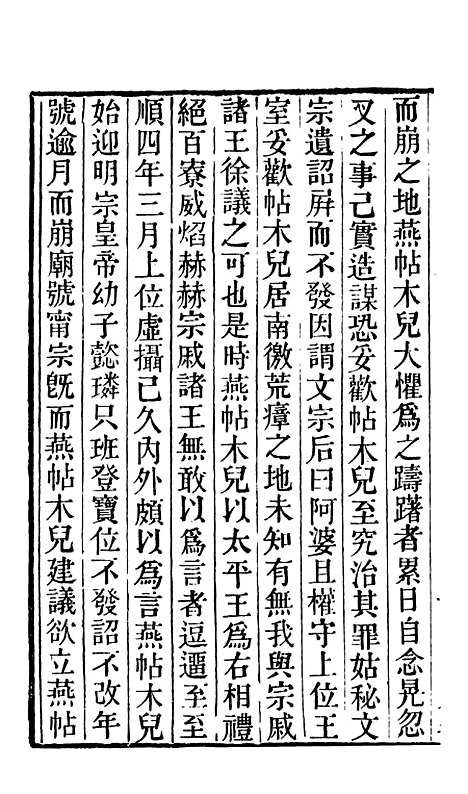 而崩之地燕帖木兒大懼爲之躊躇者累日自念晃忽
叉之事己實造謀恐妥歡帖木兒至究治其罪姑秘文
宗遺詔屏而不發因謂文宗后曰阿婆且權守上位王
室妥歡帖木兒居南徼荒瘴之地未知有無我與宗戚
諸王徐議之可也是時燕帖木兒以太平王爲右相禮
絕百寮威焰赫赫宗戚諸王無敢以爲言者逗遛至至
順四年三月上位虛攝已久內外頗以爲言燕帖木兒
始迎明宗皇帝幼子懿璘只班登寶位不發詔不改年
號逾月而崩廟號甯宗旣而燕帖木兒建議欲立燕帖